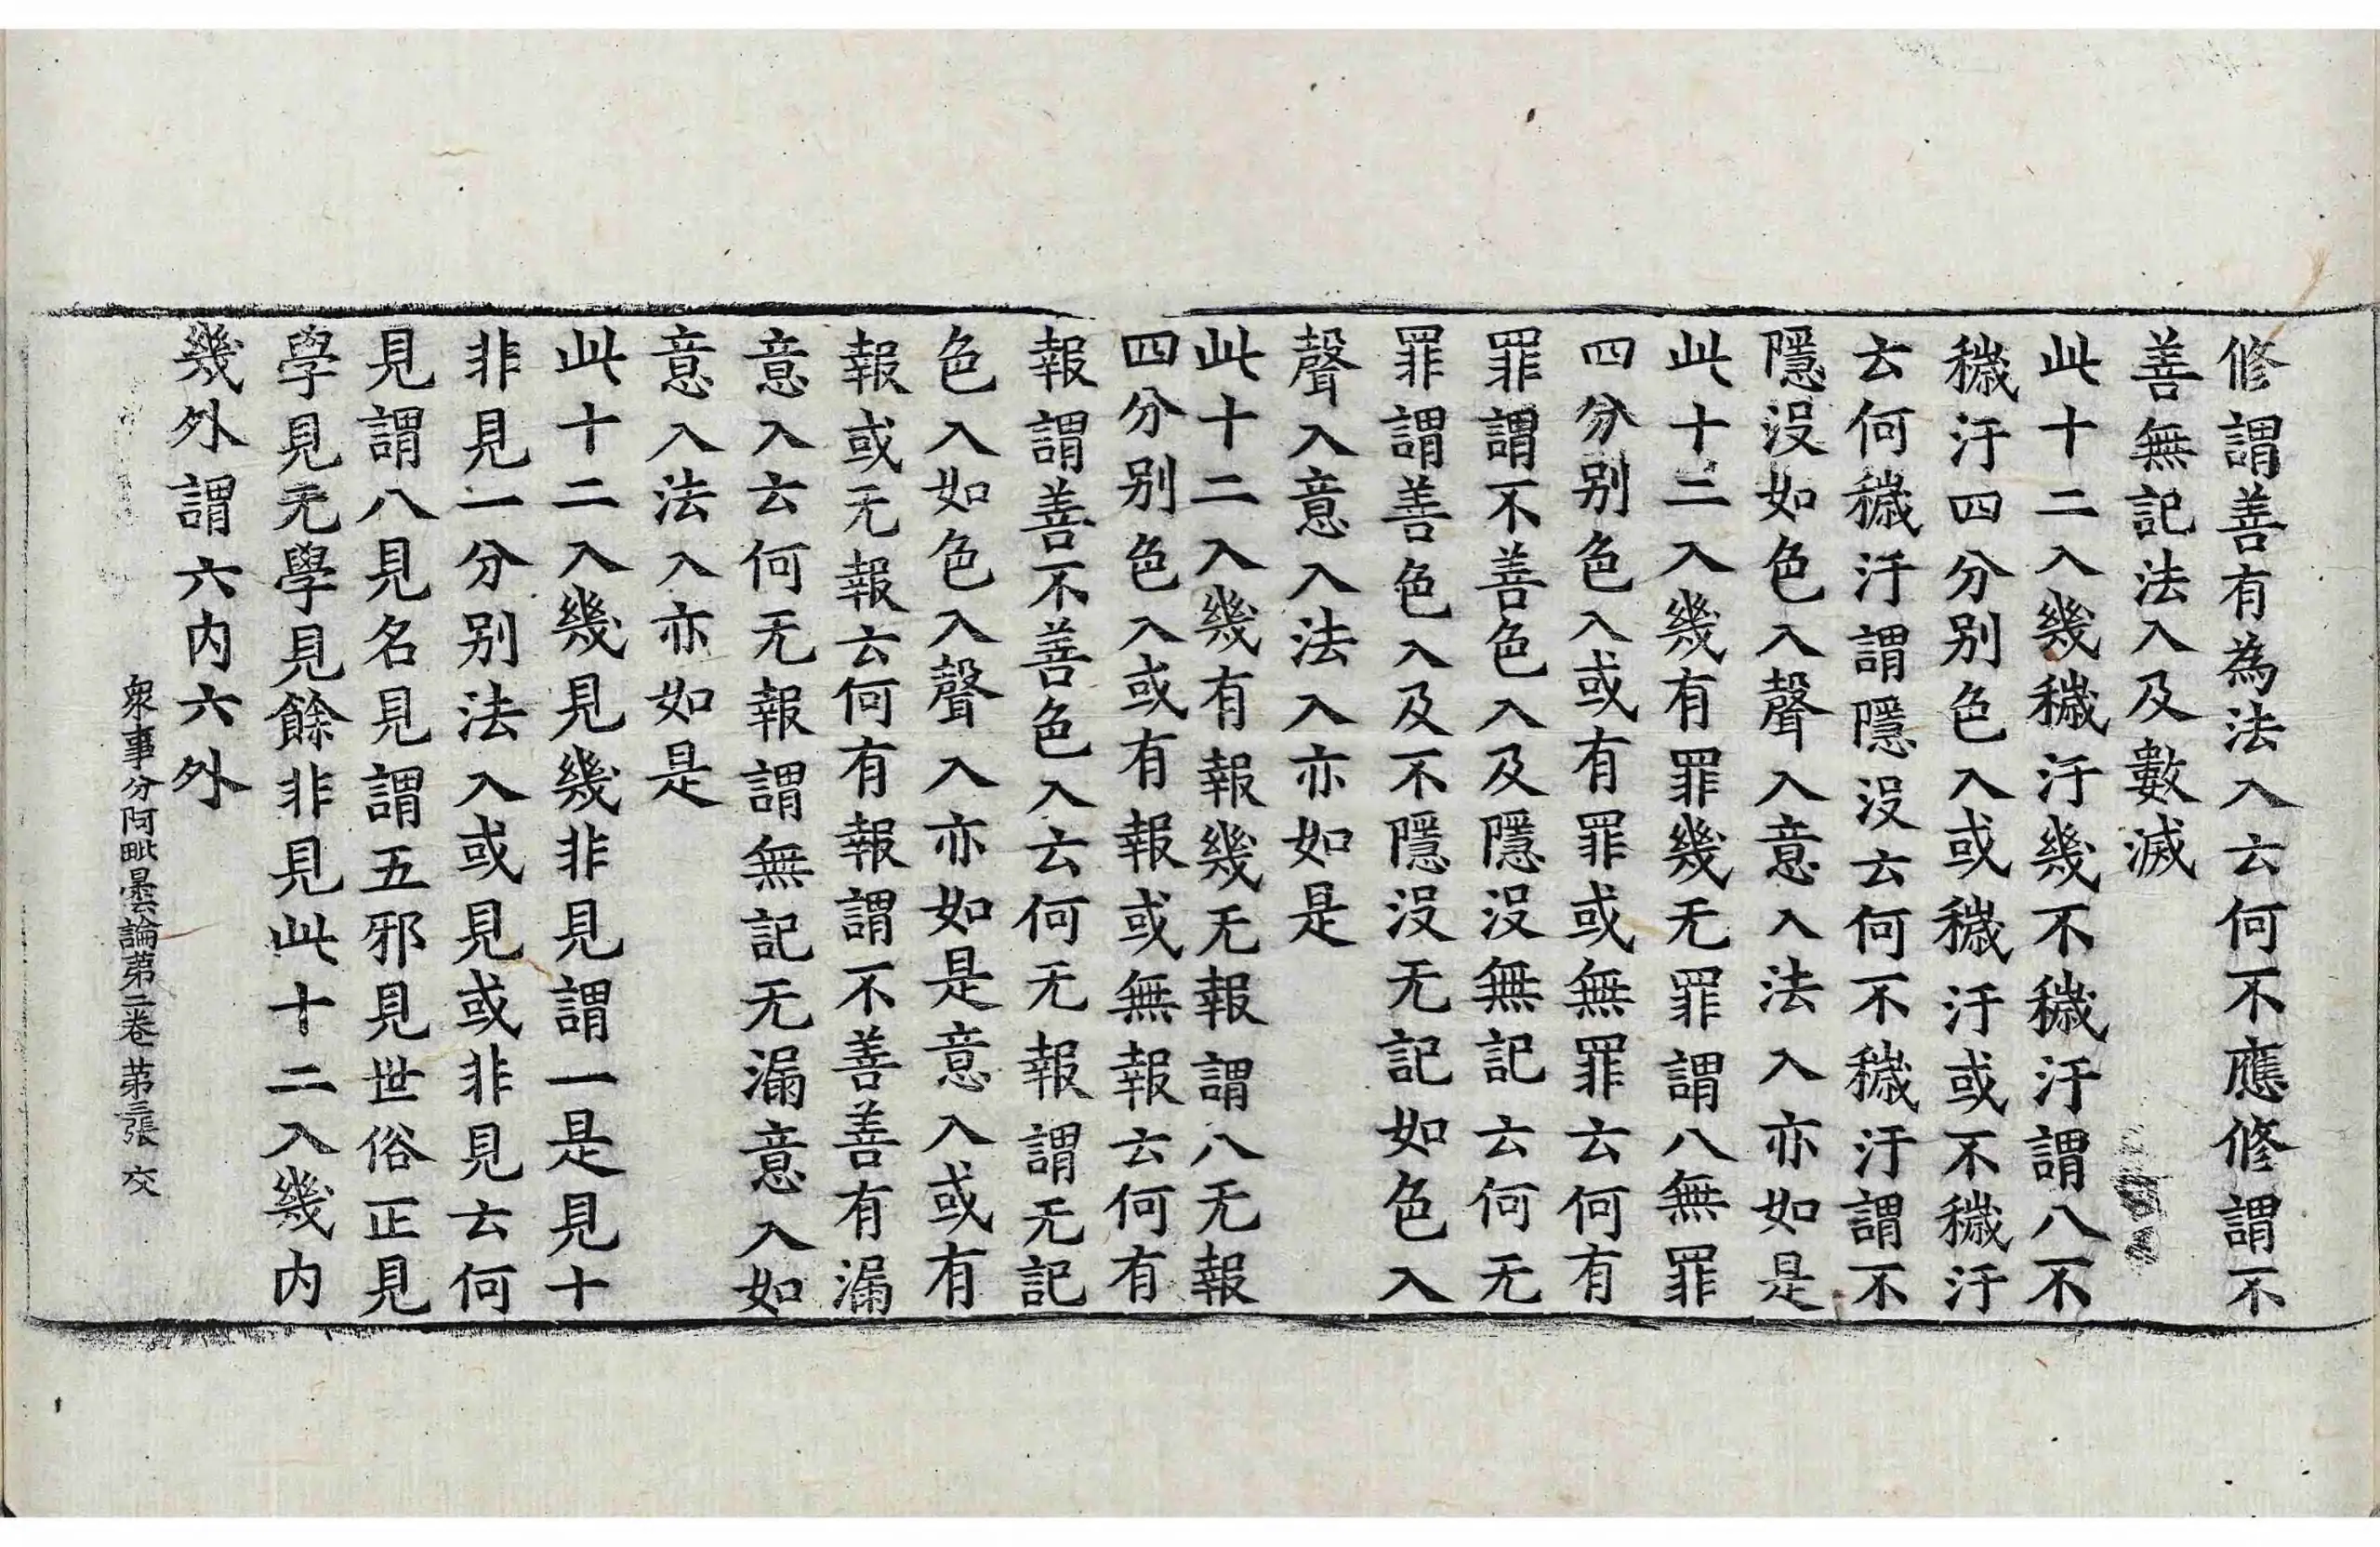 修謂善有為法入云何不應修謂不
善無記法入及數滅
此十二入幾穢汙幾不穢汙謂八不
穢汙四分别色入或穢汙或不穢汙
云何穢汙謂隱沒云何不穢汙謂不
隱沒如色入聲入意入法入亦如是
此十二入幾有罪幾无罪謂八無罪
四分别色入或有罪或無罪云何有
罪謂不善色入及隱沒無記云何无
罪謂善色入及不隱沒无記如色入
聲入意入法入亦如是
此十二入幾有報幾无報謂八无報
四分别色入或有報或無報云何有
報謂善不善色入云何无報謂无記
色入如色入聲入亦如是意入或有
報或无報云何有報謂不善善有漏
意入云何无報謂無記无漏意入如
意入法入亦如是
此十二入幾見幾非見謂一是見十
非見一分别法入或見或非見云何
見謂八見名見謂五邪見世俗正見
學見无學見餘非見此十二入幾内
幾外謂六内六外
衆事分阿毗曇論苐二卷 苐三張 交